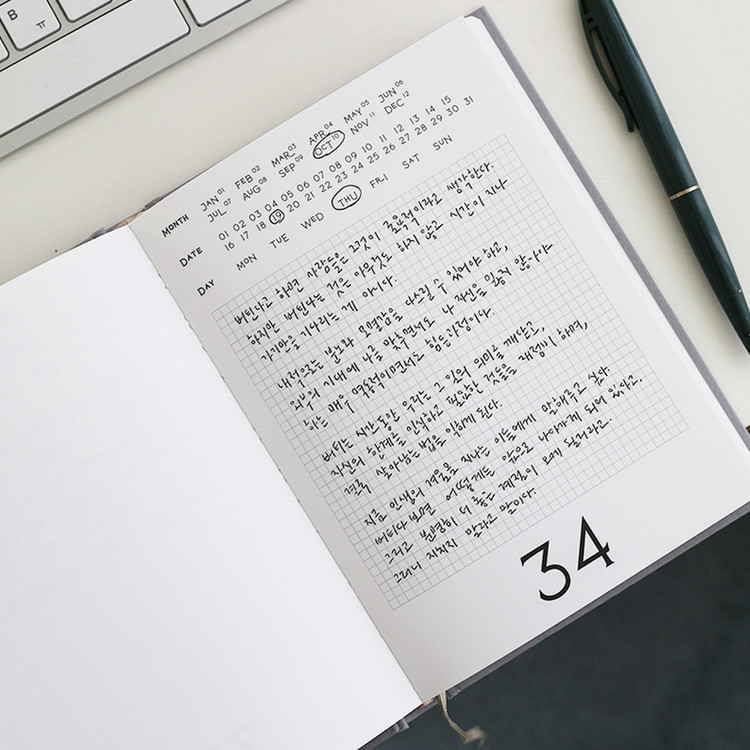 B ㅠ
MONTH JAN 01 FEB 02 MAR 03 APR 04 MAY 05 JUN 06
JUL 07 AUG 08 SEP 09 OCT 10 NOV 11 DEC 12
DATE 01 02 03 04 05 06 07 08 09 10 11 12 13 14 15
16 17 18 19 20 21 22 23 24 25 26 27 28 29 30 31
DAY MON TUE WED THU FRI SAT SUN
버틴다고 하면 사람들은 그것이 굴욕적이라고 생각한다.
하지만 버틴다는 것은 아무것도 하지 않고 시간이 지나
가기만을 기다리는 게 아니다.
내적으로는 분노와 모멸감을 다스릴 수 있어야 하고,
외부의 기대에 나를 맞추면서도 나 자신을 잃지 않아야
하는 매우 역동적이면서도 힘든 과정이다.
버티는 시간동안 우리는 그 일의 의미를 깨닫고,
자신의 한계를 인식하고 필요한 것들을 재정비 하며,
결국 살아남는 법을 익히게 된다.
지금 인생의 겨울을 지나는 이들에게 말해주고 싶다.
버티다 보면 어떻게든 앞으로 나아가게 되어 있다고.
그리고 분명히 더 좋은 계절이 오게 될거라고.
그러니 지치지 말라고 말이다.
34